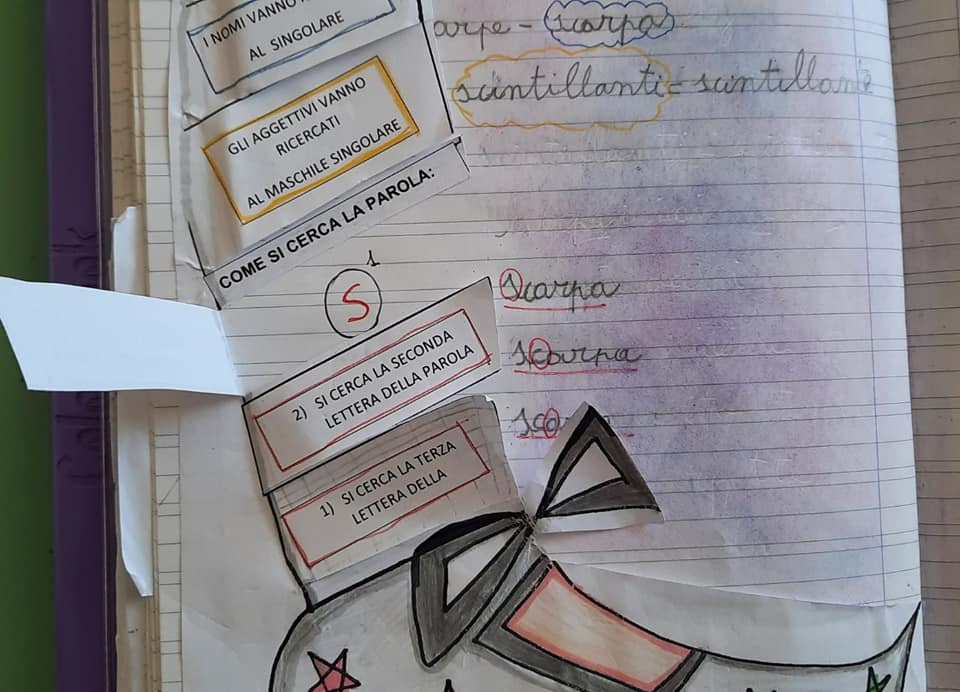 I NOMI VANNO
AL SINGOLARE
arpe - scarpa
scintillanti - scintillante
GLI AGGETTIVI VANNO
RICERCATI
AL MASCHILE SINGOLARE
COME SI CERCA LA PAROLA:
S 1
scarpa
2) SI CERCA LA SECONDA
LETTERA DELLA PAROLA
scarpa
sca
1) SI CERCA LA TERZA
LETTERA DELLA